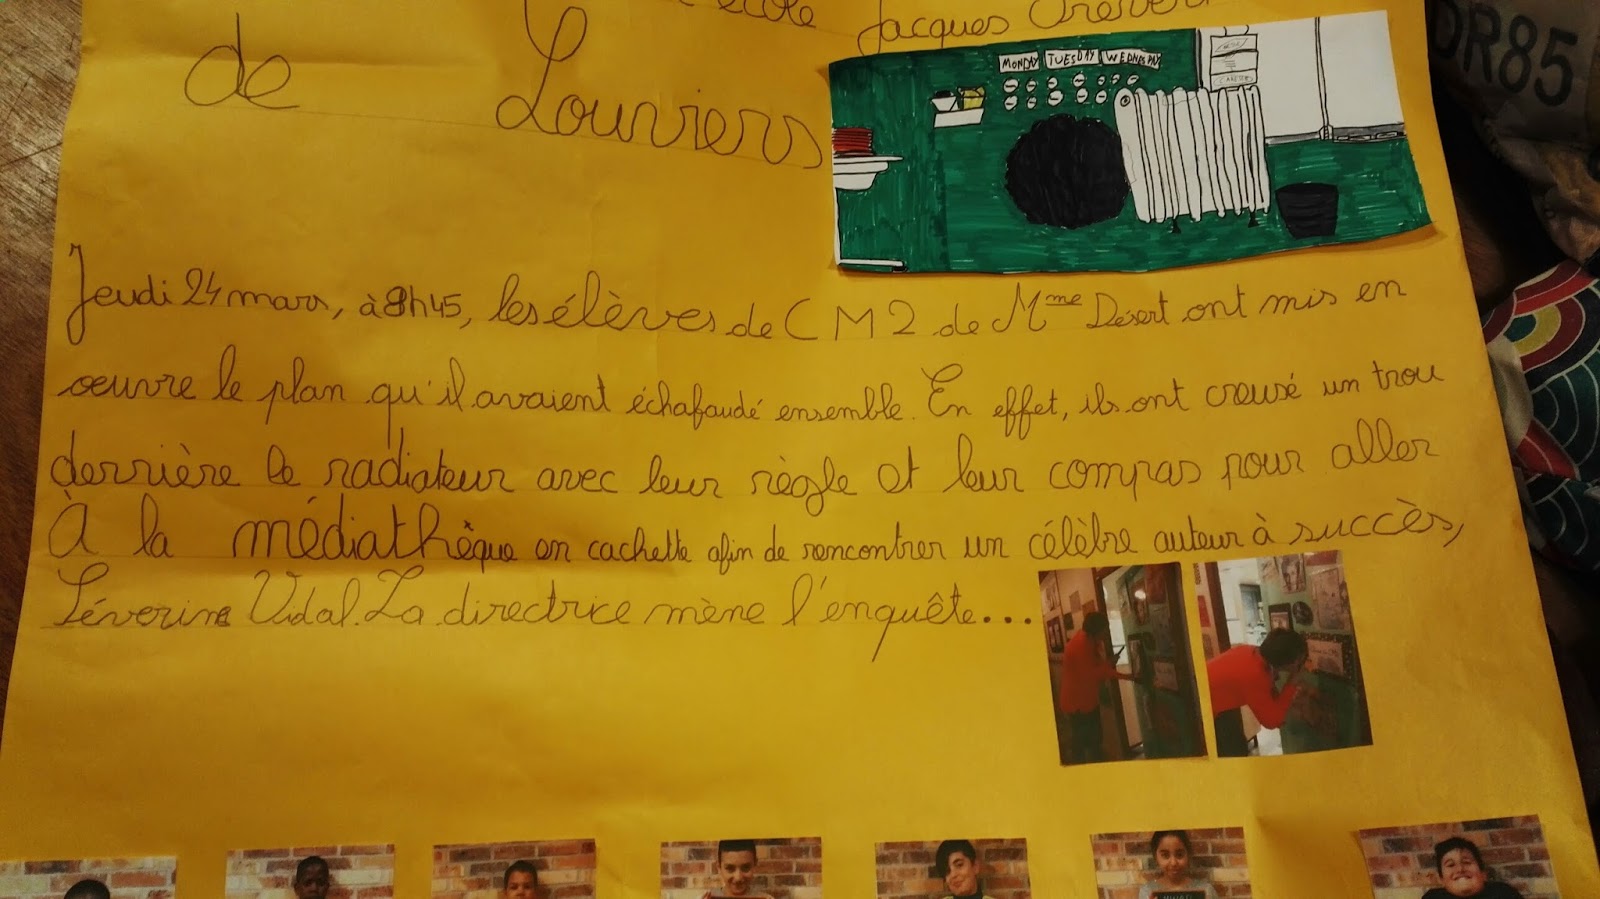 école Jacques Prévert
de Louviers
MONDAY TUESDAY WEDNESDAY
Jeudi 24 mars, à 8h45, les élèves de CM2 de Mme Désert ont mis en
oeuvre le plan qu'il avaient échafaudé ensemble. En effet, ils ont creusé un trou
derrière le radiateur avec leur règle et leur compas pour aller
À la médiathèque en cachette afin de rencontrer un célèbre auteur à succès,
Séverine Vidal. La directrice mène l'enquête...
DR85